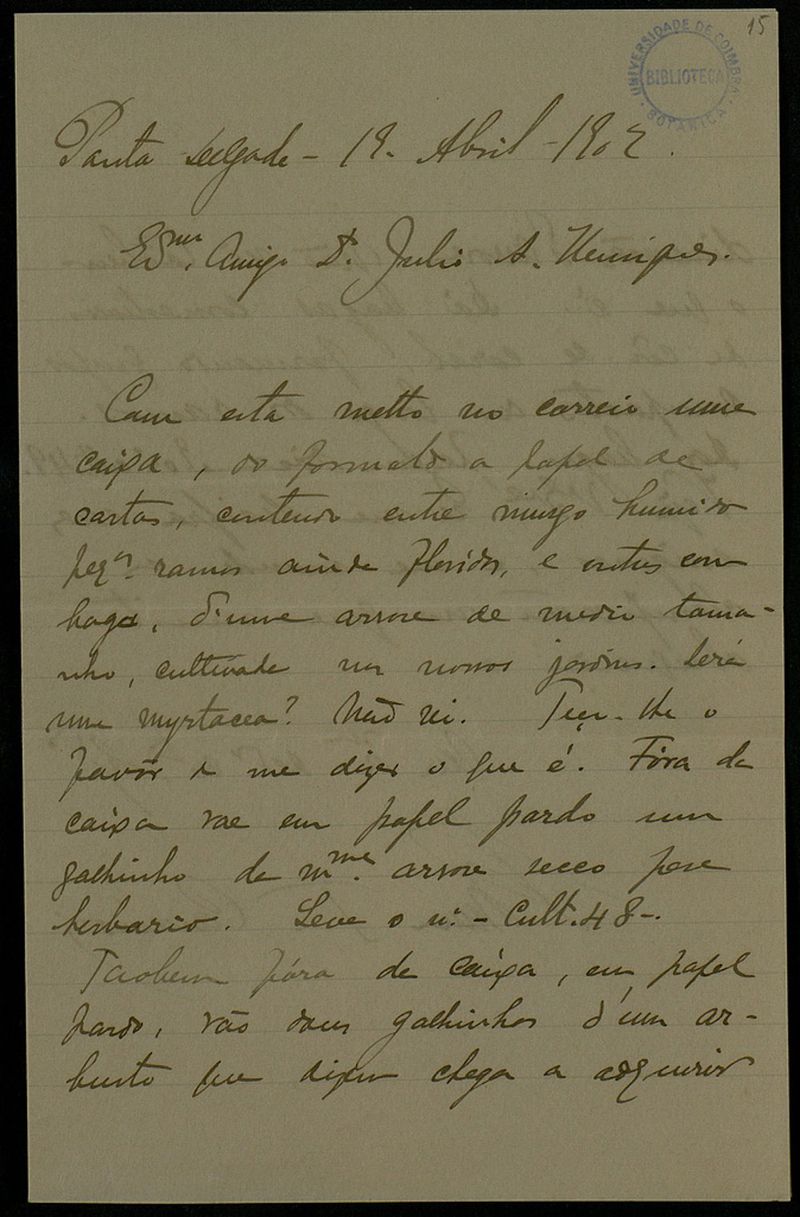 15
UNIVERSIDADE DE COIMBRA
BIBLIOTECA
BOTANICA
Ponta Delgada - 19 - Abril - 1902.
Exmo. Amigo Dr. Julio A. Henriques.
Com esta metto no correio uma
caixa, do formato a papel de
cartas, contendo entre musgo humido
peqs. ramos ainda floridos, e outros com
baga, d'uma arvore de medio tama-
nho, cultivada nos nossos jardins. Será
uma myrtacea? Não sei. Peço-lhe o
favôr de me dizer o que é. Fóra da
caixa vae em papel pardo um
galhinho da mma. arvore secco para
herbario. Leva o nº. - Cult. 48 -.
Tambem fóra da caixa, em papel
pardo, vão dous galhinhos d'um ar-
busto que dizem chega a adquirir